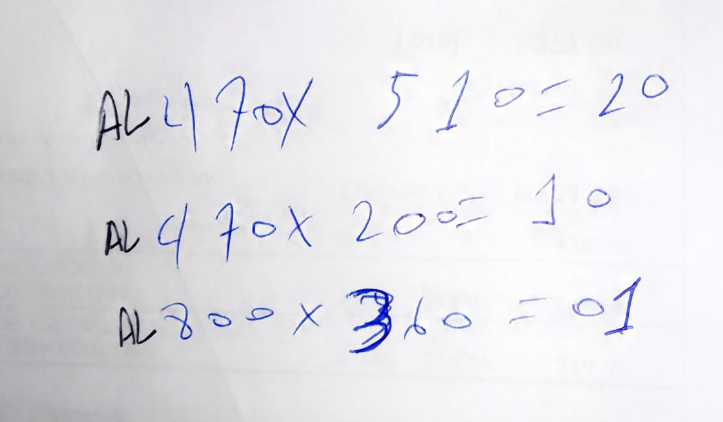 AL 470X 510=20
AL 470X 200=10
AL 800X 360=01